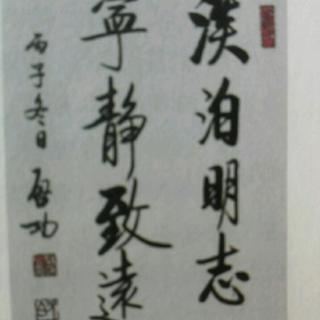 淡泊明志
寧靜致遠
丙子冬日 啓功